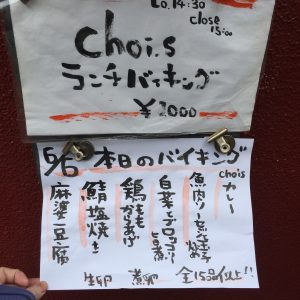 Lo.14:30
close
15:00
chois
ランチバイキング
¥1000
6/6 本日のバイキング
chois カレー
魚肉ソーセージ
炒め
白菜とブロッコリー
鶏ももからあげ
鯖塩焼き
麻婆豆腐
全15品以上!!
煮卵
生卵